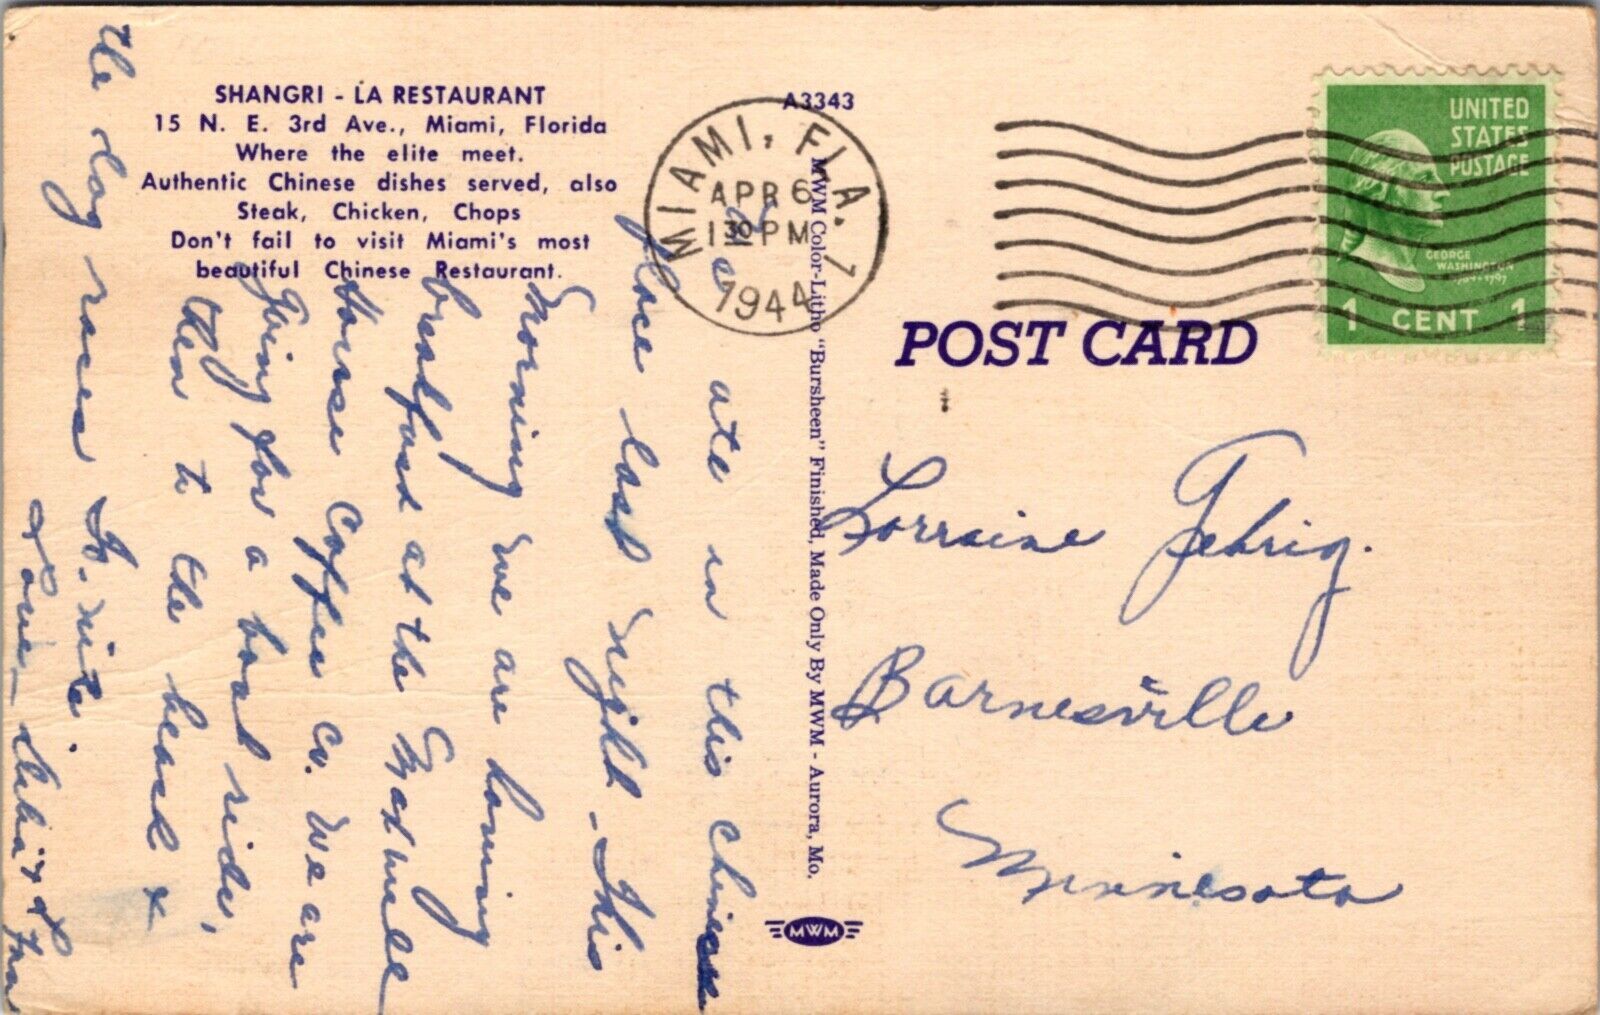 SHANGRI - LA RESTAURANT
15 N. E. 3rd Ave., Miami, Florida
Where the elite meet.
Authentic Chinese dishes served, also
Steak, Chicken, Chops
Don't fail to visit Miami's most
beautiful Chinese Restaurant.
A3343
MIAMI, FLA. 7
APR 6
1 30 PM
1944
UNITED
STATES
POSTAGE
GEORGE
WASHINGTON
1 CENT 1
POST CARD
MWM Color-Litho "Bursheen" Finished, Made Only By MWM - Aurora, Mo.
MWM
We ate in this chinese
place last night - This
morning we are having
breakfast at the Maxwell
House Coffee Co. We are
going for a boat ride,
then to the beach &
the dog races to-nite.
Love -
Lorraine Gehrig.
Barnesville
Minnesota